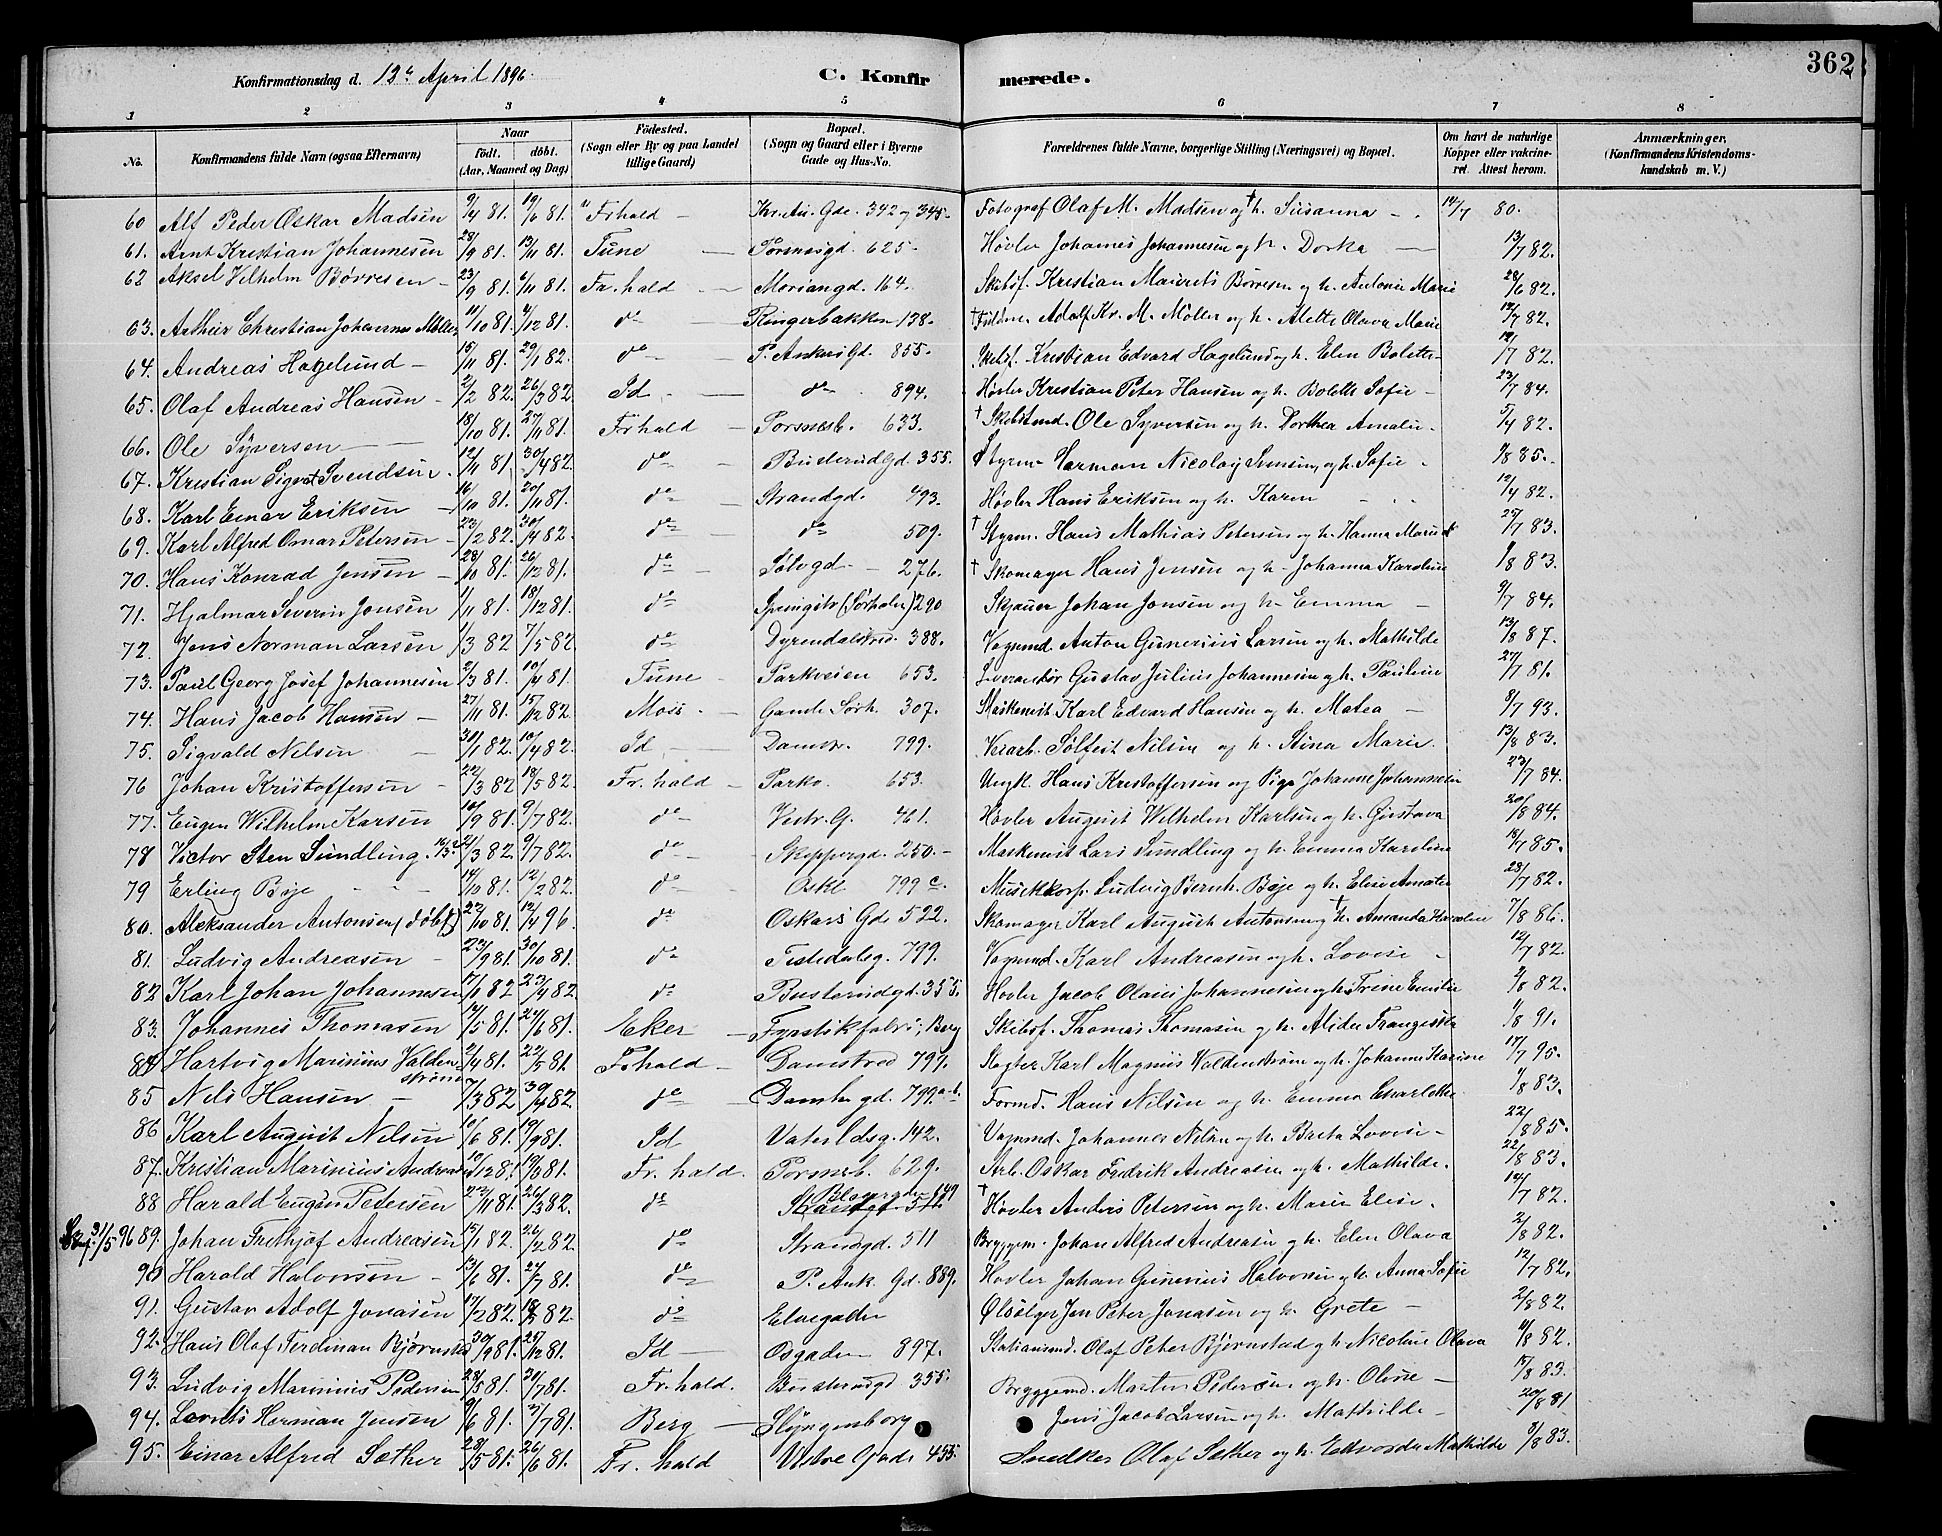 362
Konfirmationsdag d. 12te April 1896. C. Konfirmerede.
1 2 3 4 5 6 7 8
No. Konfirmandens fulde Navn (ogsaa Efternavn) Naar födt. döbt. (Aar, Maaned og Dag) Födested. (Sogn eller By og paa Landet tillige Gaard) Bopæl. (Sogn og Gaard eller i Byerne Gade og Hus-No. Forældrenes fulde Navne, borgerlige Stilling (Næringsvei) og Bopæl. Om havt de naturlige Kopper eller vakcineret. Attest herom. Anmærkninger, (Konfirmandens Kristendomskundskab m. V.)
60 Alf Peder Oskar Madsen 9/4 81. 19/6 81. Frhald Kr. Au. Gde. 342 og 345 Fotograf Olaf M. Madsen og † h. Susanna 14/7 80.
61. Arnt Kristian Johannesen 28/9 81. 13/11 81. Tune Porsnesgd. 625 Høvler Johanes Johannesen og h. Dorka 13/7 82.
62 Aksel Vilhelm Børresen 23/9 81. 6/11 81. Fr.hald Moriangd. 164. Skibsf. Kristian Maurits Børresen og h. Antonie Marie 28/6 82.
63. Arthur Christian Johannes Møller 11/10 81. 4/12 81. do Ringerbakken 138. † Fuldm. Adolf Kr. M. Møller og h. Alette Olava Marie 12/7 82.
64. Andreas Hagelund 15/11 81. 29/1 82. do P. Ankers Gd. 855. Skibsf. Kristian Edvard Hagelund og h. Elen Bolette 12/7 82.
65. Olaf Andreas Hansen 2/2 82. 26/3 82. Id do 894. Høvler Kristian Peter Hansen og h. Bolette Sofie 23/7 84.
66. Ole Syversen 18/10 81. 27/11 81. Frhald Porsnesb. 633. † Ole Syversen og h. Dorthea Amalie 5/4 82.
67. Kristian Sigvat Svendsen 12/11 81. 30/4 82. do Busterud Gd. 355. Styrm. Herman Nicolay Svensen og h. Sofie /8 85.
68. Karl Einar Eriksen 16/10 81. 20/11 81. do Strandgd. 493. Høvler Hans Eriksen og h. Karen 12/4 82.
69. Karl Alfred Omar Petersen 23/2 82. 20/4 82. do do 509. † Styrm. Hans Mathias Petersen og h. Hanna 25/7 83.
70. Hans Konrad Jensen 28/10 81. 26/12 81. do Sølvgd. 276. † Skomager Hans Jensen og h. Johanna Karoline /8 83.
71. Hjalmar Severin Jonsen 1/11 81. 18/12 81. do (Sørhalen) 290 Skjauer Johan Jonsen og h. Emma 9/7 84.
72. Jens Norman Larsen 1/3 82 7/5 82. do Dyrendalsved. 388. Vognmd. Anton Gunerius Larsen og h. Mathilde 13/8 87.
73. Paul Georg Josef Johannesen 2/3 81. 10/4 81. Tune Parkveien 653. Leverandør Gustav Julius Johannesen og h. Pauline 27/7 81.
74. Hans Jacob Hansen 27/11 81. 15/12 82. Moss Gamle Sørh. 307. Maskenist Karl Edvard Hansen og h. Matea 8/7 93.
75. Sigvald Nilsen 31/1 82. 10/4 82. Id Damstr. 799. Nilsen og h. Stina Marie. 13/8 83.
76 Johan Kristoffersen 22/3 82 18/5 82. Fr.hald Parkv. 653. Ungk. Hans Kristoffersen og Pige Johanne Johannesen 23/7 84.
77. Eugen Wilhelm Karsen 10/9 81. 9/7 82. do Vestr. G. 461. Høvler August Wilhelm Karlsen og h. Gustava 20/8 84.
78 Victor Sten Sundling. 21/3 82. 9/7 82. do Skippergd. 250. Maskenist Lars Sundling og h. Emma Karoline 18/7 85.
79 Erling Bøje 14/10 81. 12/2 82. do Oskl. 799 c. Musikkorp. Ludvig Bernh. Bøje og h. Elise Amalie 28/7 82.
80. Aleksander Antonsen (døbt) 22/10 81. 12/4 96. do Oskars Gd. 522. Skomager Karl August Antonsen og † h. Amanda Karoline 7/8 86.
81. Ludvig Andreasen 23/9 81. 30/10 81. do Tistedalsg. 799. Vognmd. Karl Andreasen og h. Lovise 12/7 82.
82 Karl Johan Johannesen 17/1 82 23/4 82. do Busterudgd. 355. Høvler Jacob Olaus Johannesen og h. Trine Emilie 9/8 82.
83. Johannes Thomasen 14/5 81. 24/6 81. Eker Fyrstikfabr., Berg Skibsf. Thomas Thomasen og h. Alida Franzeska 1/8 91.
84 Hartvig Marinius Valdenstrøm 2/4 81. 22/5 81. Frhald Damstred 799. Slagter Karl Magnus Valdenstrøm og h. Johanne Karine 17/7 95.
85 Nils Hansen 7/3 82 30/4 82. do gd. 799 a-b. Formd. Hans Nilsen og h. Emma Charlotte /8 83.
86 Karl August Nilsen 10/6 81. 19/9 81. Id Vaterl dsg. 142. Vognmd. Johannes Nilsen og h. Brita Lovise 22/8 85.
87. Kristian Marinius 10/12 8 19/3 81. Fr.hald. Porsnesb. 629. Arb. Oskar Fredrik Andreasen og h. Mathilde. 22/8 83.
88 Harald Eugen Petersen 23/11 81. 26/3 82. do 149 † Høvler Anders Petersen og h. Marie Elise. 14/7 82.
Konf. 31/5 96 89. Johan Frithjof Andreasen 15/1 82. 26/2 82. do Strandgd. 511 Bryggem. Johan Alfred Andreasen og h. Elen Olava 2/8 82.
90 Harald Halvorsen 13/6 81. 24/7 81. do P. Ank. Gd. 889. Høvler Johan Gunerius Halvorsen og h. Anna Sofie 12/7 82.
91. Gustav Adolf Jonasen 17/2 82. 18/5 82. do Elvegaden Ølsælger Jon Peter Jonasen og h. Grete 2/8 82.
92. Hans Olaf Ferdinan Bjørnstad 30/9 81. 25/12 81. Id Osgaden 897. Stationsmd. Olaf Peter Bjørnstad og h. Nicoline Olava 11/8 82.
93. Ludvig Marinius Pedersen 28/5 81. 24/7 81. Fr.hald. Busterudgd 355. Bryggemd. Martin Pedersen og h. Olise 15/8 83.
94. Lavrits Herman Jensen 9/6 81. 3/7 81. Berg Slyngenborg Jens Jacob Larsen og h. Mathilde 20/8 81
95. Einar Alfred Sæther 28/5 81. 26/6 81. Fr.hald Vestre Gade 455. Snedker Olaf Sæther og h. Edvarda Mathilde 3/8 83.